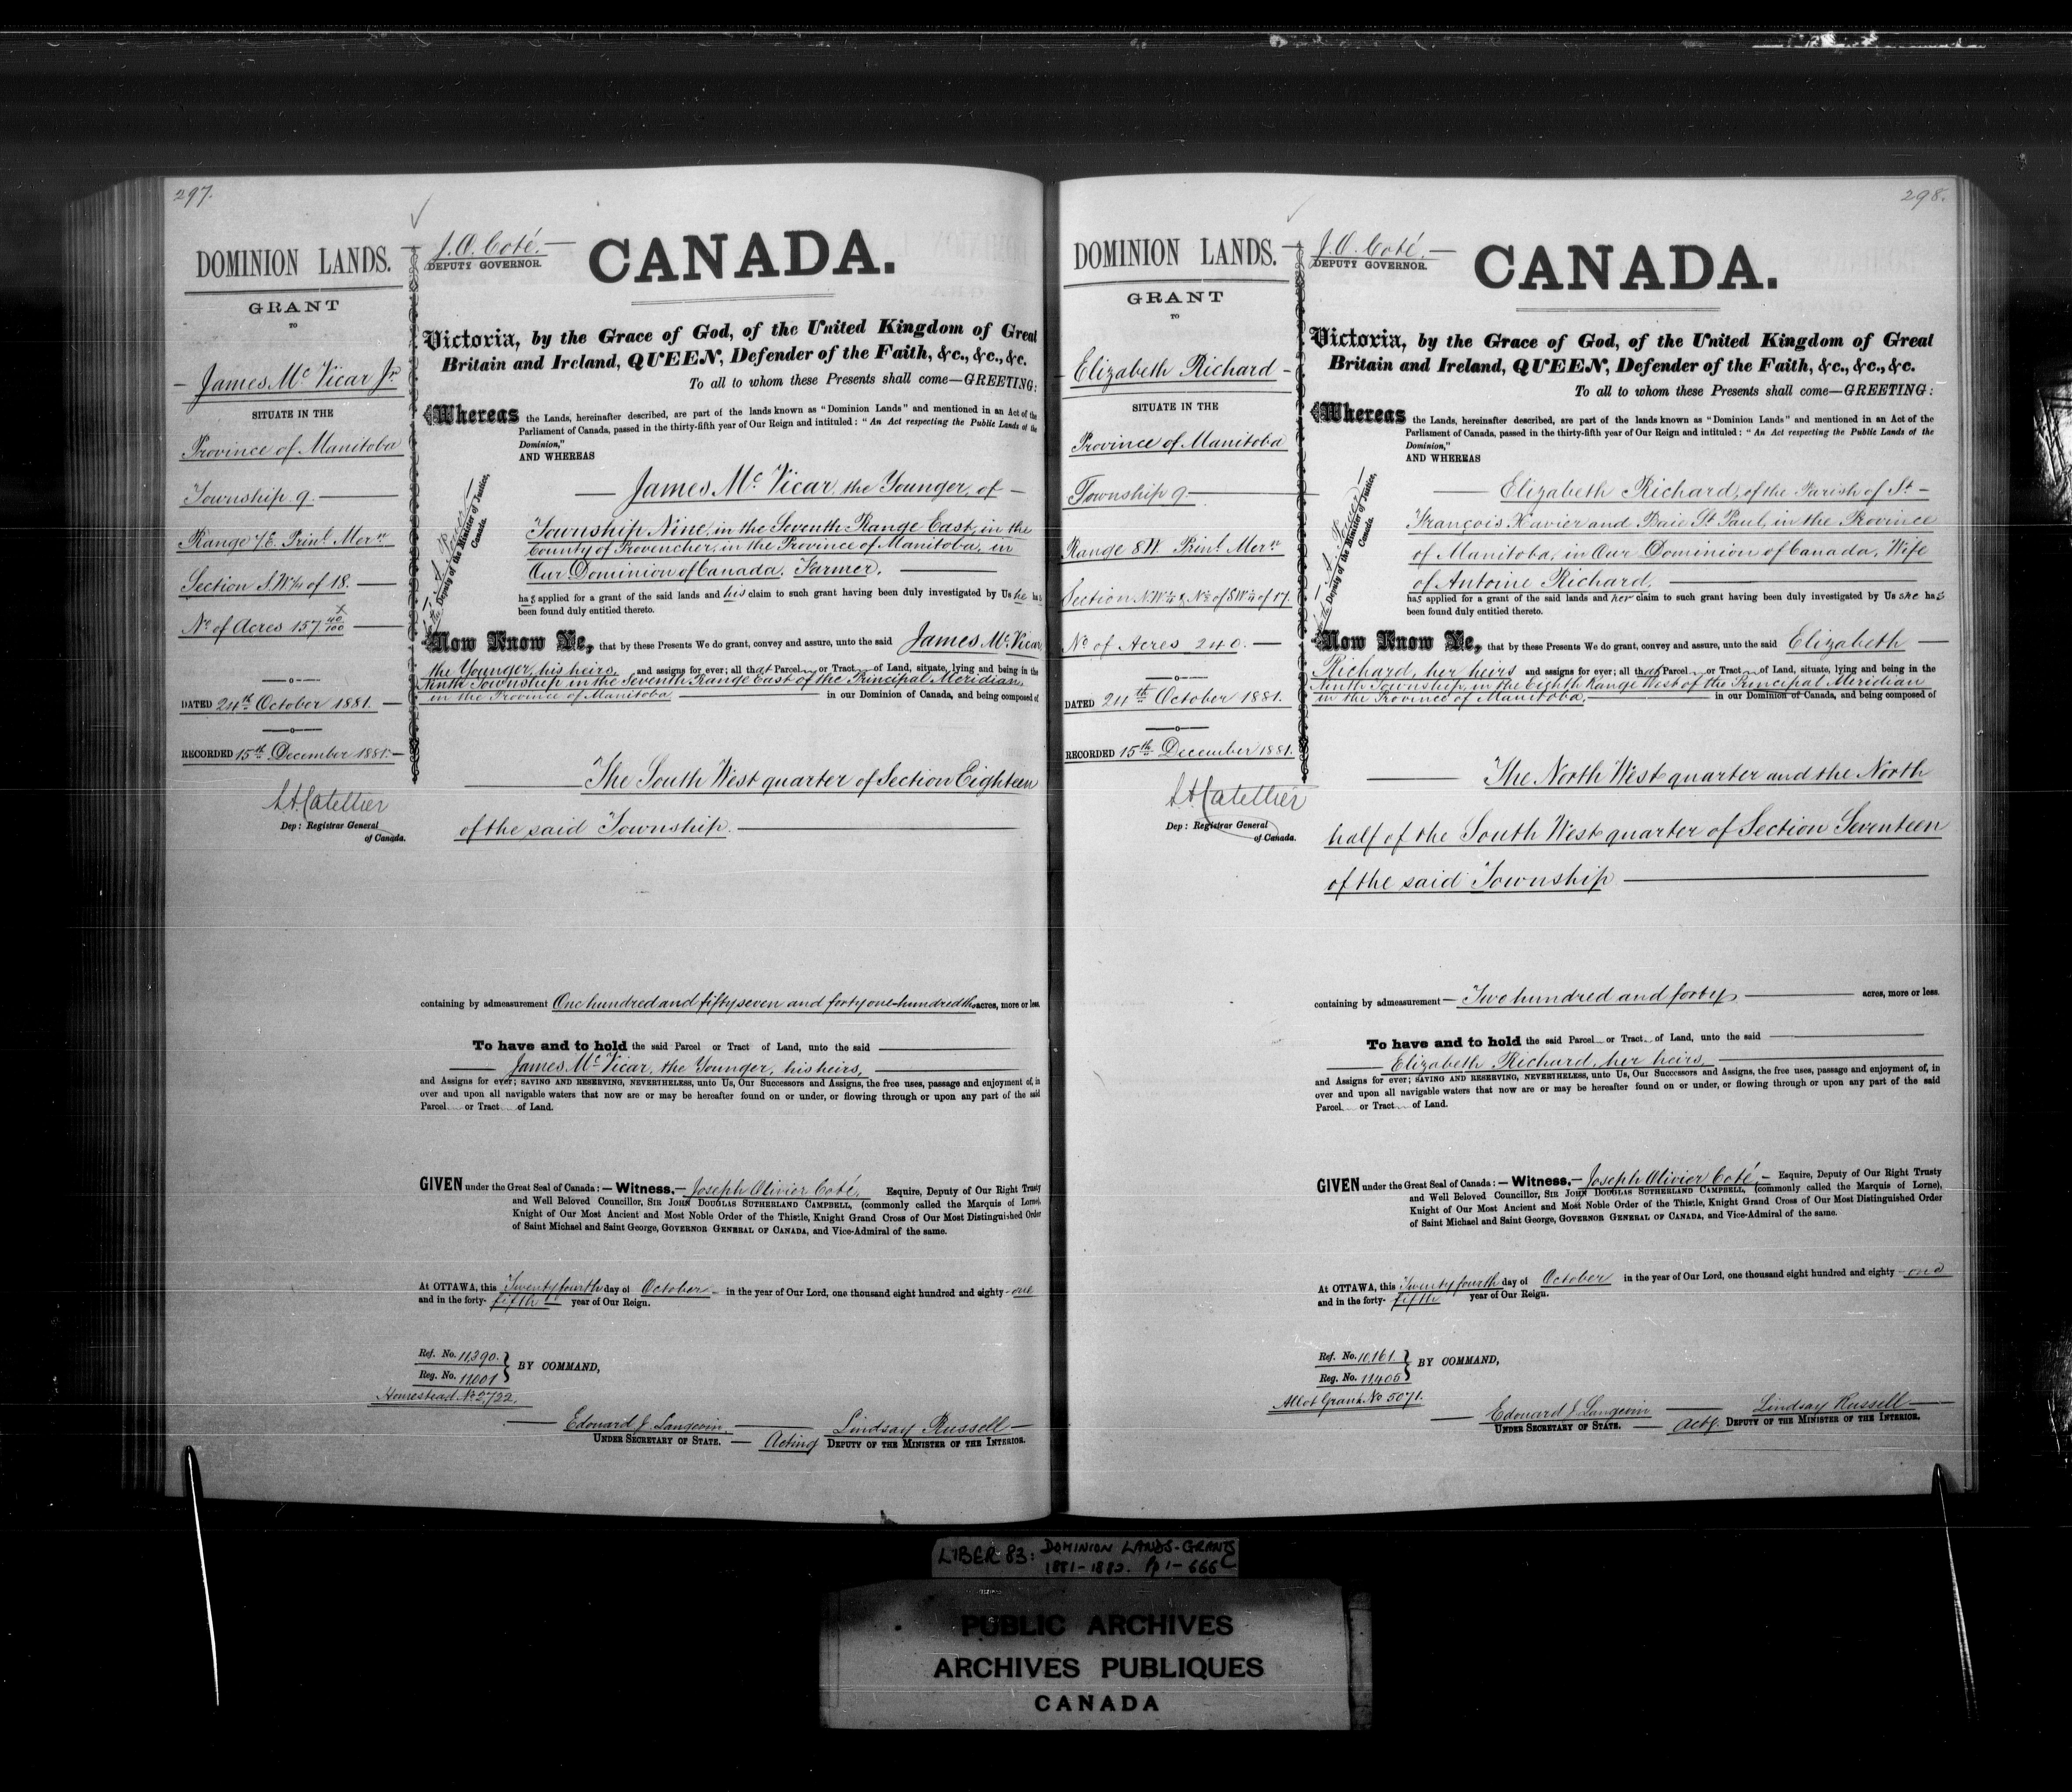 297.
DOMINION LANDS.
GRANT
TO
- James Mc Vicar Jr.
SITUATE IN THE
Province of Manitoba
Township 9.
Range 7 E. Prinl. Mern.
Section S.W¼ of 18.
No. of Acres 157 40/100
DATED 24th October 1881.
RECORDED 15th December 1881.
Dep: Registrar General
of Canada.
J. O. Coté.
DEPUTY GOVERNOR.
CANADA.
Victoria, by the Grace of God, of the United Kingdom of Great
Britain and Ireland, QUEEN, Defender of the Faith, &c., &c., &c.
To all to whom these Presents shall come—GREETING:
Whereas the Lands, hereinafter described, are part of the lands known as "Dominion Lands" and mentioned in an Act of the
Parliament of Canada, passed in the thirty-fifth year of Our Reign and intituled: "An Act respecting the Public Lands of the
Dominion,"
AND WHEREAS
James Mc Vicar, the Younger, of
Township Nine, in the Seventh Range East, in the
County of Provencher, in the Province of Manitoba, in
Our Dominion of Canada, Farmer,
has applied for a grant of the said lands and his claim to such grant having been duly investigated by Us he has
been found duly entitled thereto.
A. Power
for the Deputy of the Minister of Justice,
Canada.
Now Know Ye, that by these Presents We do grant, convey and assure, unto the said James Mc Vicar
the Younger, his heirs and assigns for ever; all that Parcel or Tract of Land, situate, lying and being in the
Ninth Township in the Seventh Range East of the Principal Meridian,
in the Province of Manitoba in our Dominion of Canada, and being composed of
The South West quarter of Section Eighteen
of the said Township.
containing by admeasurement One hundred and fifty seven and forty one-hundredths acres, more or less.
To have and to hold the said Parcel or Tract of Land, unto the said
James Mc Vicar, the Younger, his heirs,
and Assigns for ever; SAVING AND RESERVING, NEVERTHELESS, unto Us, Our Successors and Assigns, the free uses, passage and enjoyment of, in
over and upon all navigable waters that now are or may be hereafter found on or under, or flowing through or upon any part of the said
Parcel or Tract of Land.
GIVEN under the Great Seal of Canada:—Witness,—Joseph Olivier Coté, Esquire, Deputy of Our Right Trusty
and Well Beloved Councillor, SIR JOHN DOUGLAS SUTHERLAND CAMPBELL, (commonly called the Marquis of Lorne),
Knight of Our Most Ancient and Most Noble Order of the Thistle, Knight Grand Cross of Our Most Distinguished Order
of Saint Michael and Saint George, GOVERNOR GENERAL OF CANADA, and Vice-Admiral of the same.
At OTTAWA, this Twenty fourth day of October in the year of Our Lord, one thousand eight hundred and eighty-one
and in the forty-fifth year of Our Reign.
Ref. No. 11,390.
Reg. No. 11,001
BY COMMAND,
Homestead No. 2,722.
Edouard J. Langevin. Lindsay Russell
UNDER SECRETARY OF STATE. Acting DEPUTY OF THE MINISTER OF THE INTERIOR.
298.
DOMINION LANDS.
GRANT
TO
Elizabeth Richard
SITUATE IN THE
Province of Manitoba
Township 9
Range 8 W. Prinl. Mern.
Section N.W¼ & N½ of S.W¼ of 17.
No. of Acres 240.
DATED 24th October 1881.
RECORDED 15th December 1881.
Dep: Registrar General
of Canada.
J. O. Coté.
DEPUTY GOVERNOR.
CANADA.
Victoria, by the Grace of God, of the United Kingdom of Great
Britain and Ireland, QUEEN, Defender of the Faith, &c., &c., &c.
To all to whom these Presents shall come—GREETING:
Whereas the Lands, hereinafter described, are part of the lands known as "Dominion Lands" and mentioned in an Act of the
Parliament of Canada, passed in the thirty-fifth year of Our Reign and intituled: "An Act respecting the Public Lands of the
Dominion,"
AND WHEREAS
Elizabeth Richard, of the Parish of St
François Xavier and Baie St Paul, in the Province
of Manitoba, in Our Dominion of Canada, Wife
of Antoine Richard,
has applied for a grant of the said lands and her claim to such grant having been duly investigated by Us she has
been found duly entitled thereto.
A. Power
for the Deputy of the Minister of Justice,
Canada.
Now Know Ye, that by these Presents We do grant, convey and assure, unto the said Elizabeth
Richard, her heirs and assigns for ever; all that Parcel or Tract of Land, situate, lying and being in the
Ninth Township, in the Eighth Range West of the Principal Meridian
in the Province of Manitoba, in our Dominion of Canada, and being composed of
The North West quarter and the North
half of the South West quarter of Section Seventeen
of the said Township
containing by admeasurement Two hundred and forty acres, more or less.
To have and to hold the said Parcel or Tract of Land, unto the said
Elizabeth Richard, her heirs,
and Assigns for ever; SAVING AND RESERVING, NEVERTHELESS, unto Us, Our Successors and Assigns, the free uses, passage and enjoyment of, in
over and upon all navigable waters that now are or may be hereafter found on or under, or flowing through or upon any part of the said
Parcel or Tract of Land.
GIVEN under the Great Seal of Canada:—Witness,—Joseph Olivier Coté,— Esquire, Deputy of Our Right Trusty
and Well Beloved Councillor, SIR JOHN DOUGLAS SUTHERLAND CAMPBELL, (commonly called the Marquis of Lorne),
Knight of Our Most Ancient and Most Noble Order of the Thistle, Knight Grand Cross of Our Most Distinguished Order
of Saint Michael and Saint George, GOVERNOR GENERAL OF CANADA, and Vice-Admiral of the same.
At OTTAWA, this Twenty fourth day of October in the year of Our Lord, one thousand eight hundred and eighty-one
and in the forty-fifth year of Our Reign.
Ref. No. 10,161.
Reg. No. 11,405
BY COMMAND,
Allot Grant No 5071.
Edouard J. Langevin Lindsay Russell
UNDER SECRETARY OF STATE. Actg. DEPUTY OF THE MINISTER OF THE INTERIOR.
LIBER 83: DOMINION LANDS-GRANTS
1881-1882. Pp 1-666
PUBLIC ARCHIVES
ARCHIVES PUBLIQUES
CANADA